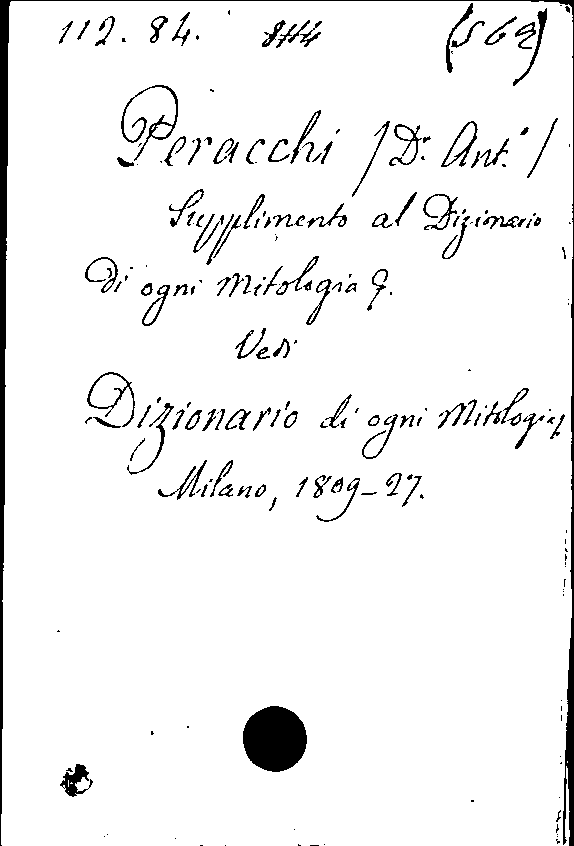 112. 84.
Peracchi /Dr. Ant.o/
Supplimento al Dizionario
di ogni Mitologia &.
Vedi
Dizionario di ogni Mitologia
Milano, 1809-27.